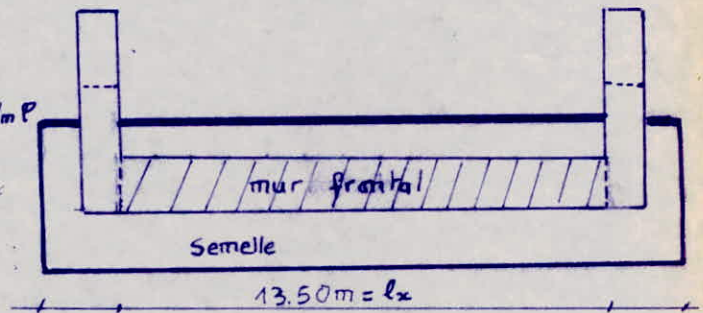 mur frontal
Semelle
13.50m = lx